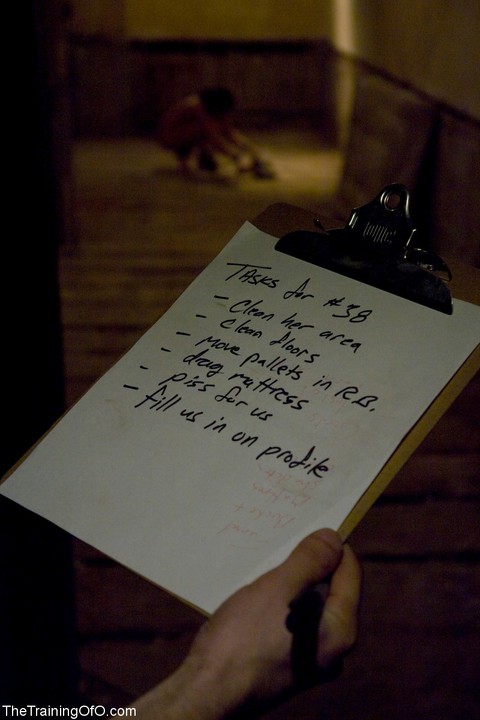 TASKS for #38
- Clean her area
- Clean floors
- move pallets in R.B.
- drag mattress
- piss for us
- fill us in on profile
TheTrainingOfO.com